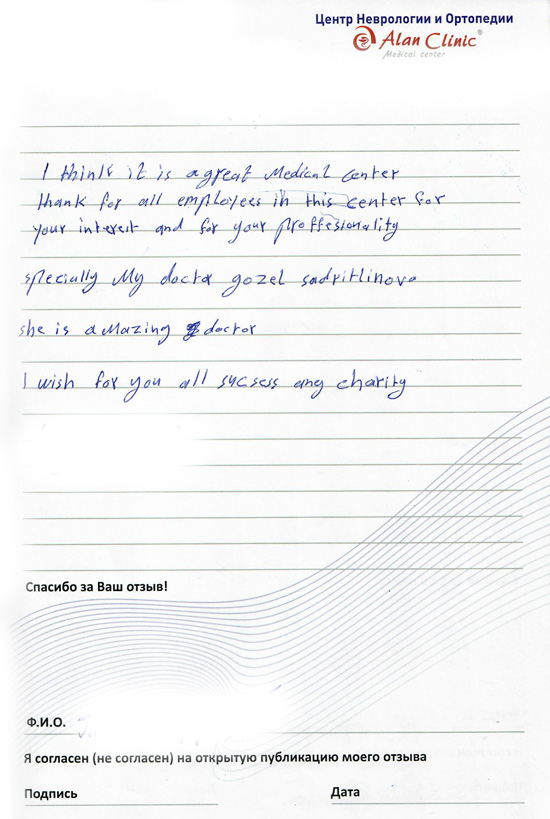 Центр Неврологии и Ортопедии
Alan Clinic®
Medical center
I think it is a great Medical center
thank for all employees in this center for
your interest and for your proffesionality
specially My doctor gozel sadritlinova
she is amazing doctor
I wish for you all sucsess any charity
Спасибо за Ваш отзыв!
Ф.И.О.
Я согласен (не согласен) на открытую публикацию моего отзыва
Подпись
Дата